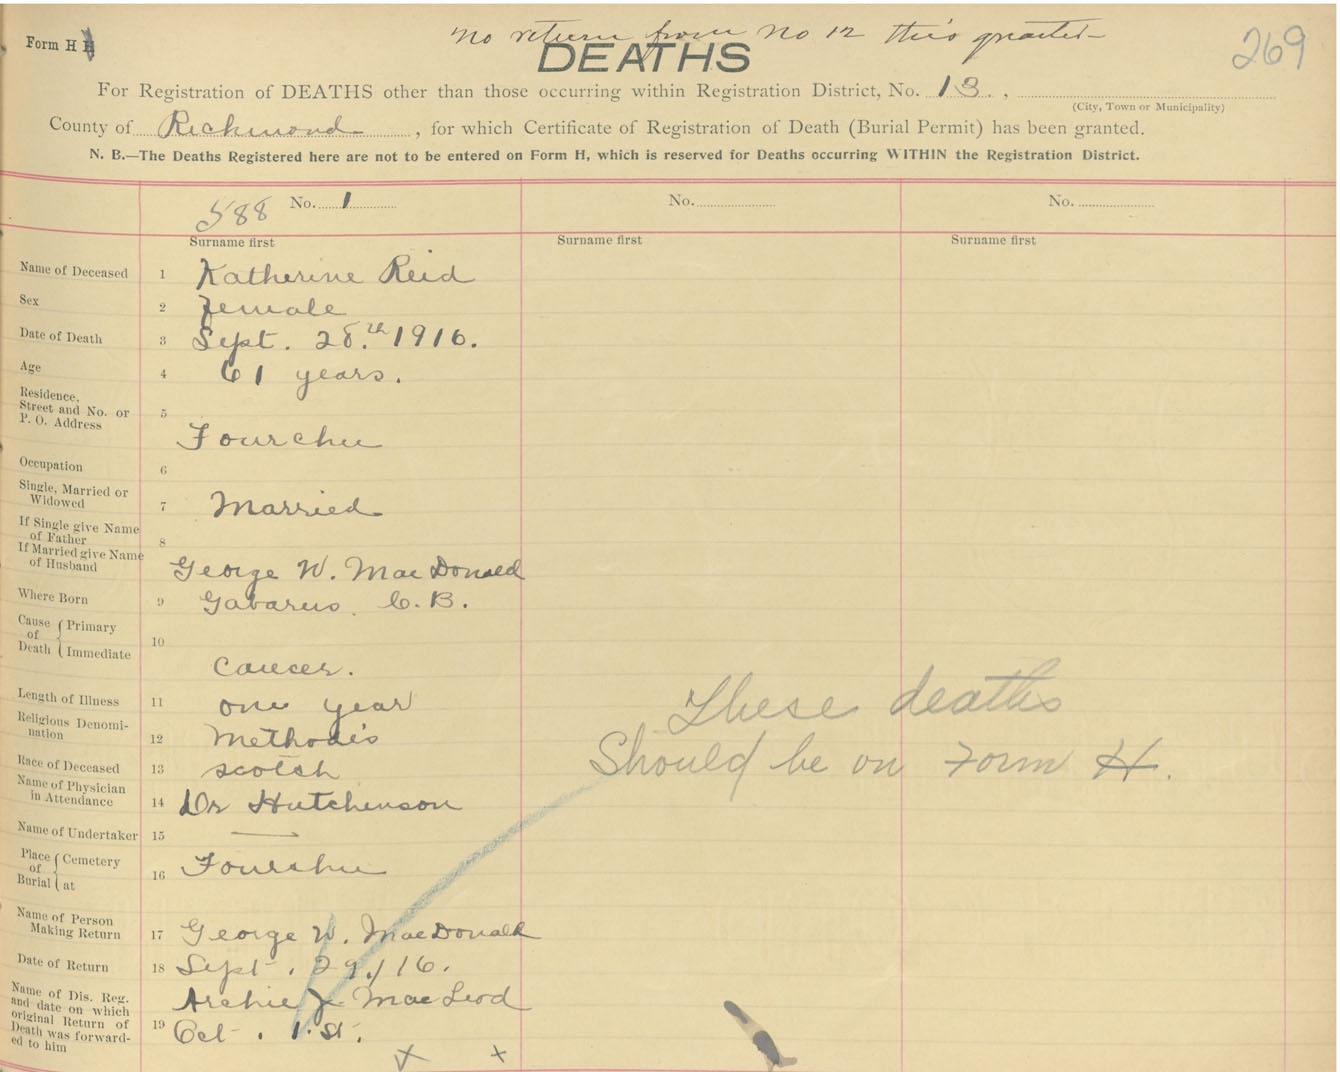 no return from No 12 this quarter
Form H H
DEATHS
269
For Registration of DEATHS other than those occurring within Registration District, No. 13,
(City, Town or Municipality)
County of Richmond, for which Certificate of Registration of Death (Burial Permit) has been granted.
N. B.—The Deaths Registered here are not to be entered on Form H, which is reserved for Deaths occurring WITHIN the Registration District.
588 No. 1 No. No.
Surname first Surname first Surname first
Name of Deceased 1 Katherine Reid
Sex 2 Female
Date of Death 3 Sept. 28.th 1916.
Age 4 61 years.
Residence, Street and No. or P. O. Address 5 Fourchu
Occupation 6
Single, Married or Widowed 7 Married
If Single give Name of Father
If Married give Name of Husband 8 George W. MacDonald
Where Born 9 Gabarus, C.B.
Cause of Death { Primary Immediate 10 Cancer.
Length of Illness 11 one year
Religious Denomi-nation 12 Methodis
Race of Deceased 13 scotch
Name of Physician in Attendance 14 Dr Hutchenson
Name of Undertaker 15 —
Place of Burial { Cemetery at 16 Fourchu
Name of Person Making Return 17 George W. MacDonald
Date of Return 18 Sept. 29/16.
Name of Dis. Reg. and date on which original Return of Death was forward-ed to him 19 Archie J. MacLeod
Oct. 1.St.
x x
These deaths
Should be on Form H.